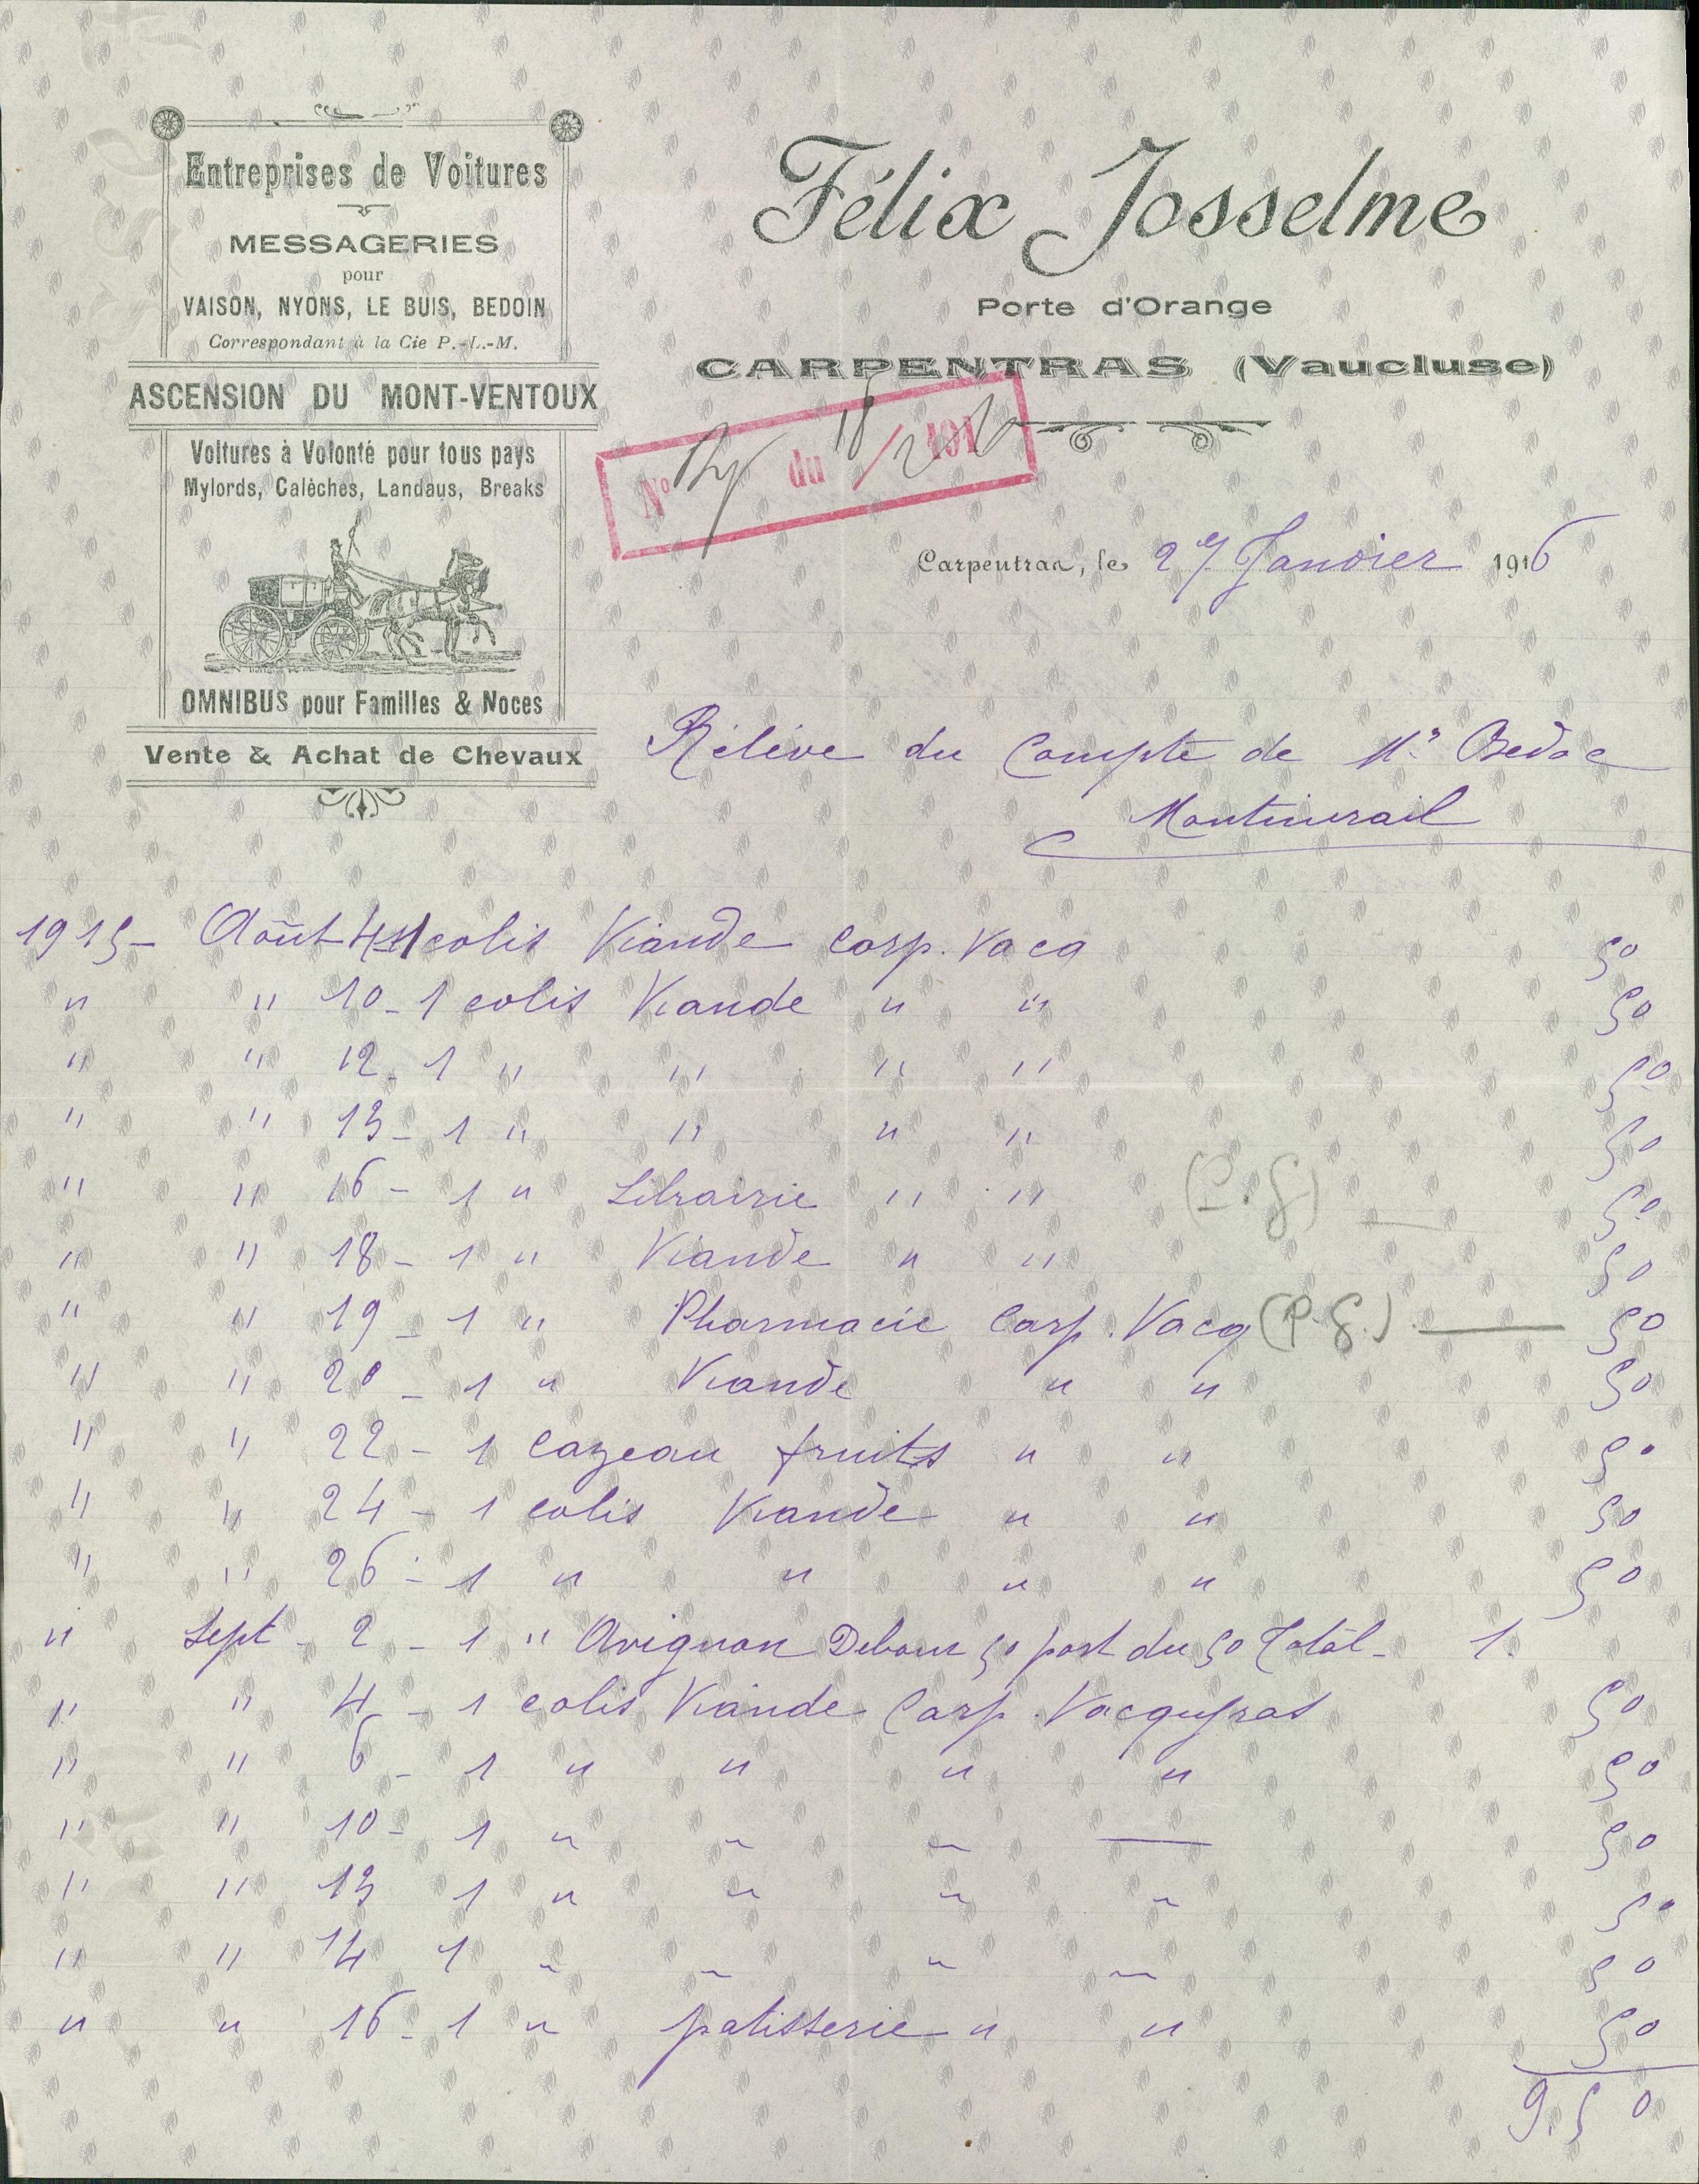 Entreprises de Voitures
MESSAGERIES
pour
VAISON, NYONS, LE BUIS, BEDOIN
Correspondant à la Cie P.-L.-M.
ASCENSION DU MONT-VENTOUX
Voitures à Volonté pour tous pays
Mylords, Calèches, Landaus, Breaks
OMNIBUS pour Familles & Noces
Vente & Achat de Chevaux
Félix Josselme
Porte d'Orange
CARPENTRAS (Vaucluse)
N° du 18/2 191
Carpentras, le 27 Janvier 1916
Rélévé du Compte de Mr Bedoc
Montmirail
1915 - Août 4 1 colis Viande Carp. Vacq 50
" " 10 - 1 colis Viande " " 50
" " 12 - 1 " " " " 50
" " 13 - 1 " " " " 50
" " 16 - 1 " Librairie " " (P.G) 50
" " 18 - 1 " Viande " " 50
" " 19 - 1 " Pharmacie Carp. Vacq (P.G.) 50
" " 20 - 1 " Viande " " 50
" " 22 - 1 Cageau fruits " " 50
" " 24 - 1 colis Viande " " 50
" " 26 - 1 " " " " 50
" Sept - 2 - 1 " Avignon Debour 50 port du 50 Total - 1.
" " 4 - 1 colis Viande Carp. Vacqueyras 50
" " 6 - 1 " " " " 50
" " 10 - 1 " " " — 50
" " 13 1 " " " " 50
" " 14 1 " " " " 50
" " 16 - 1 " patisserie " " 50
9.50